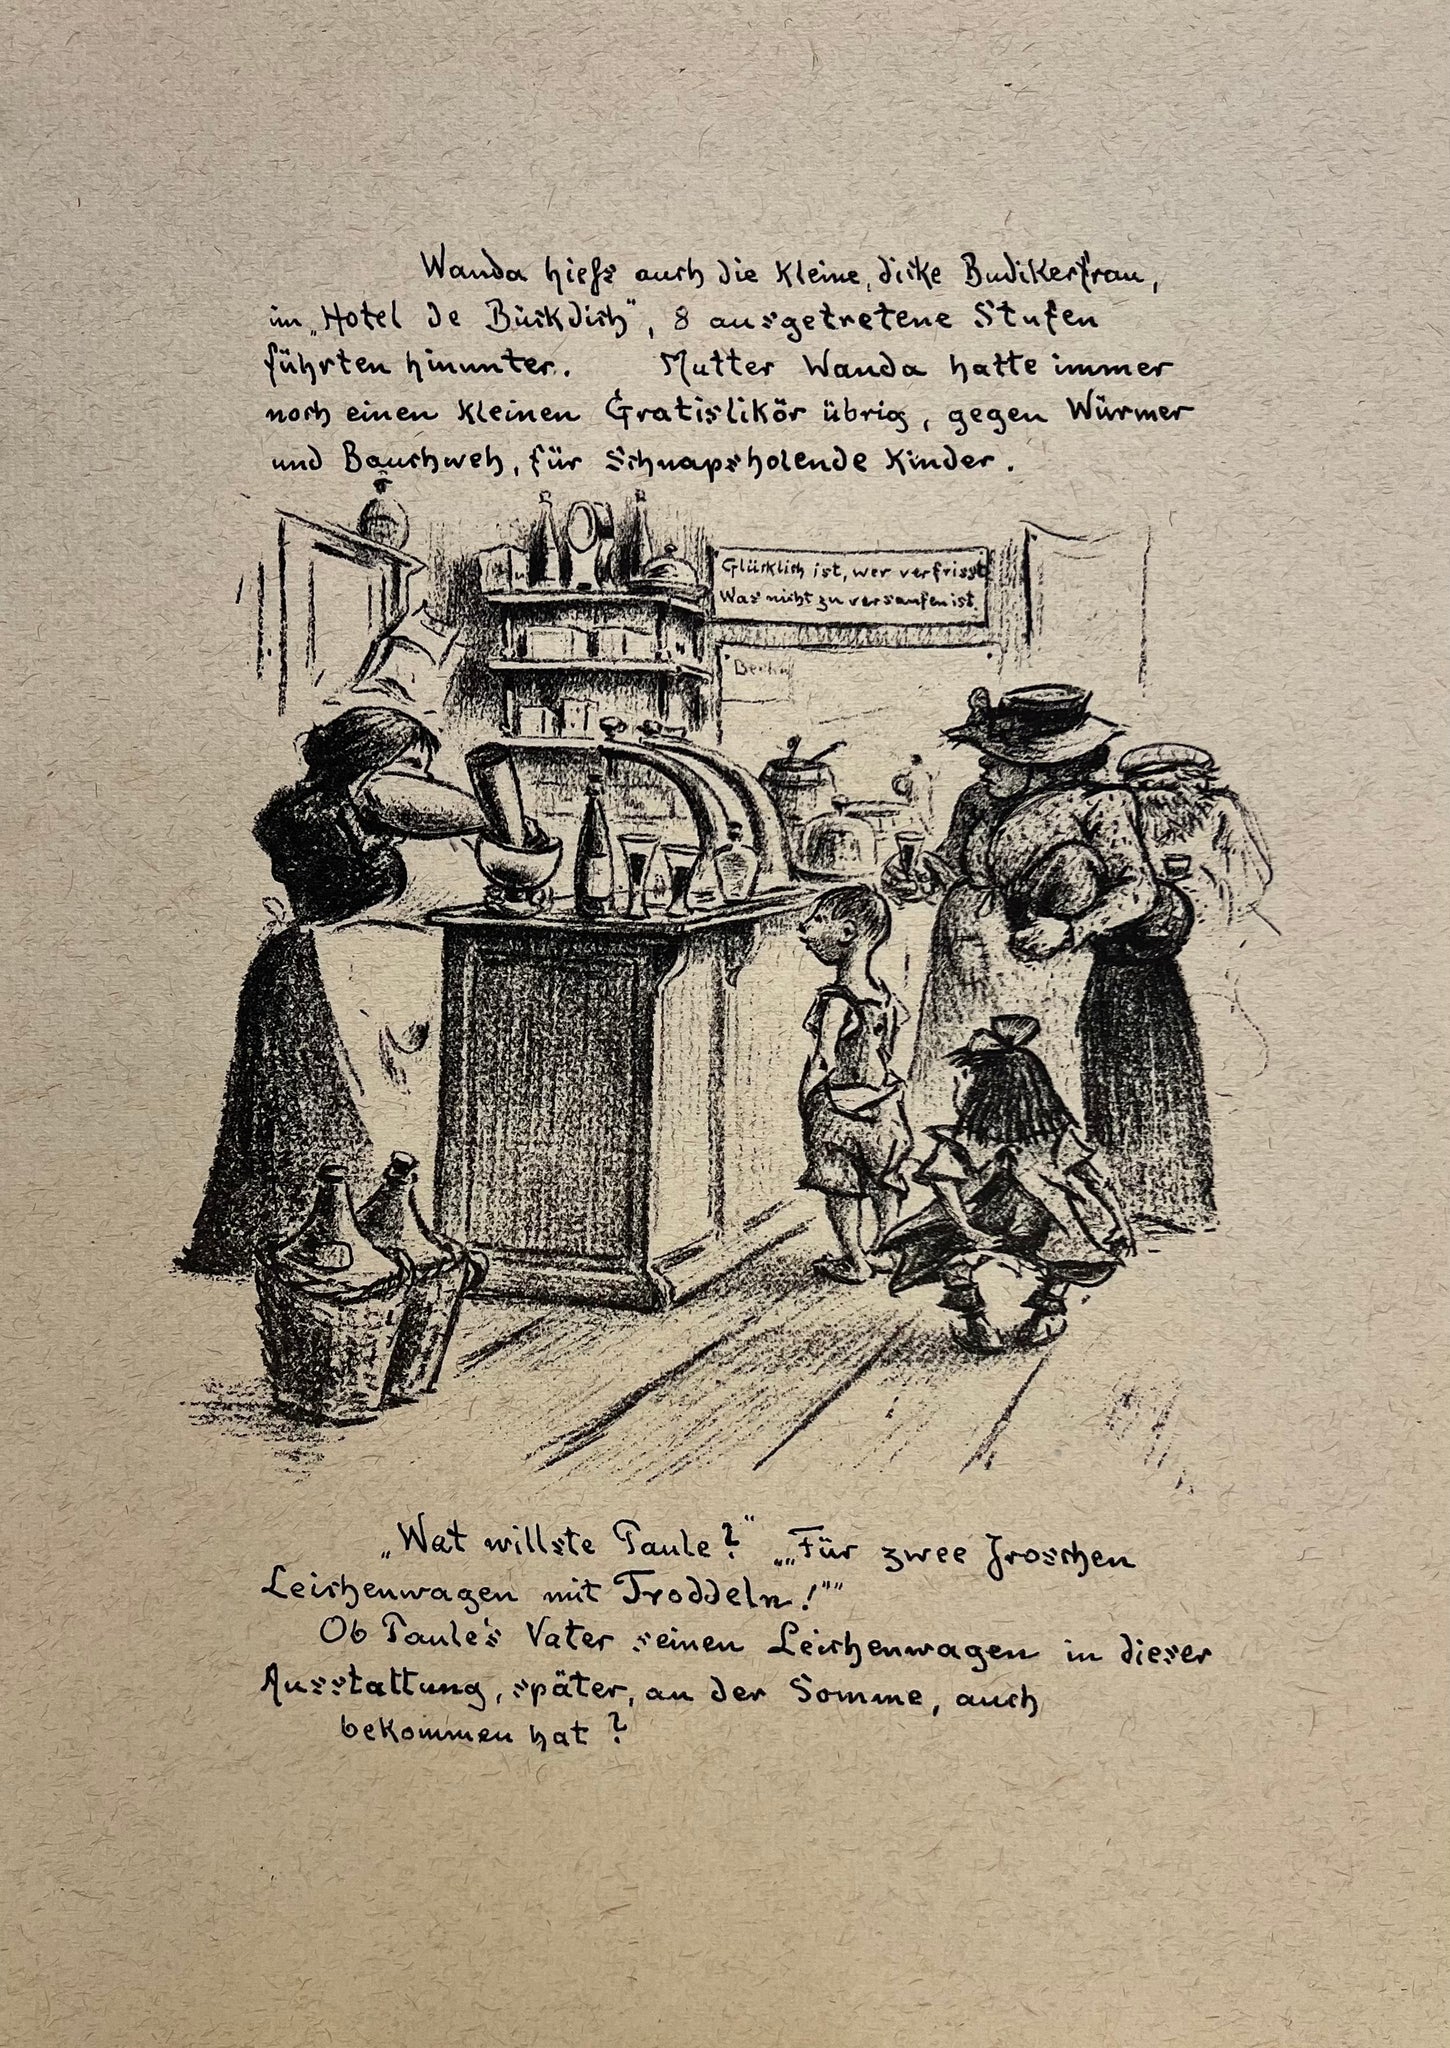 Wanda hiess auch die kleine, dicke Budikerfrau,
im „Hotel de Bückdich", 8 ausgetretene Stufen
führten hinunter. Mutter Wanda hatte immer
noch einen kleinen Gratislikör übrig, gegen Würmer
und Bauchweh, für Schnapsholende Kinder.
Glücklich ist, wer verfrisst
Was nicht zu versaufen ist.
„Wat willste Paule?" „„Für zwee Jroschen
Leichenwagen mit Troddeln!""
Ob Paule's Vater seinen Leichenwagen in dieser
Ausstattung, später, an der Somme, auch
bekommen hat?